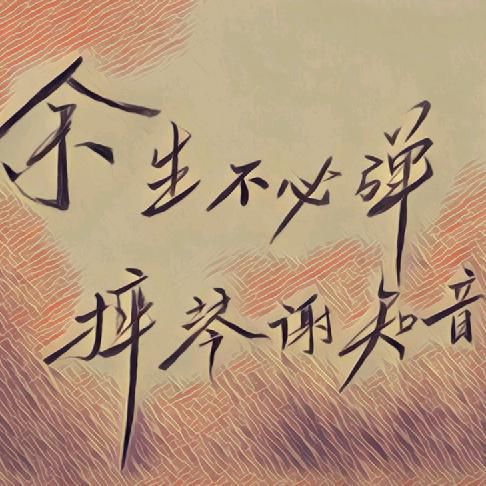 余生不必弹
摔琴谢知音